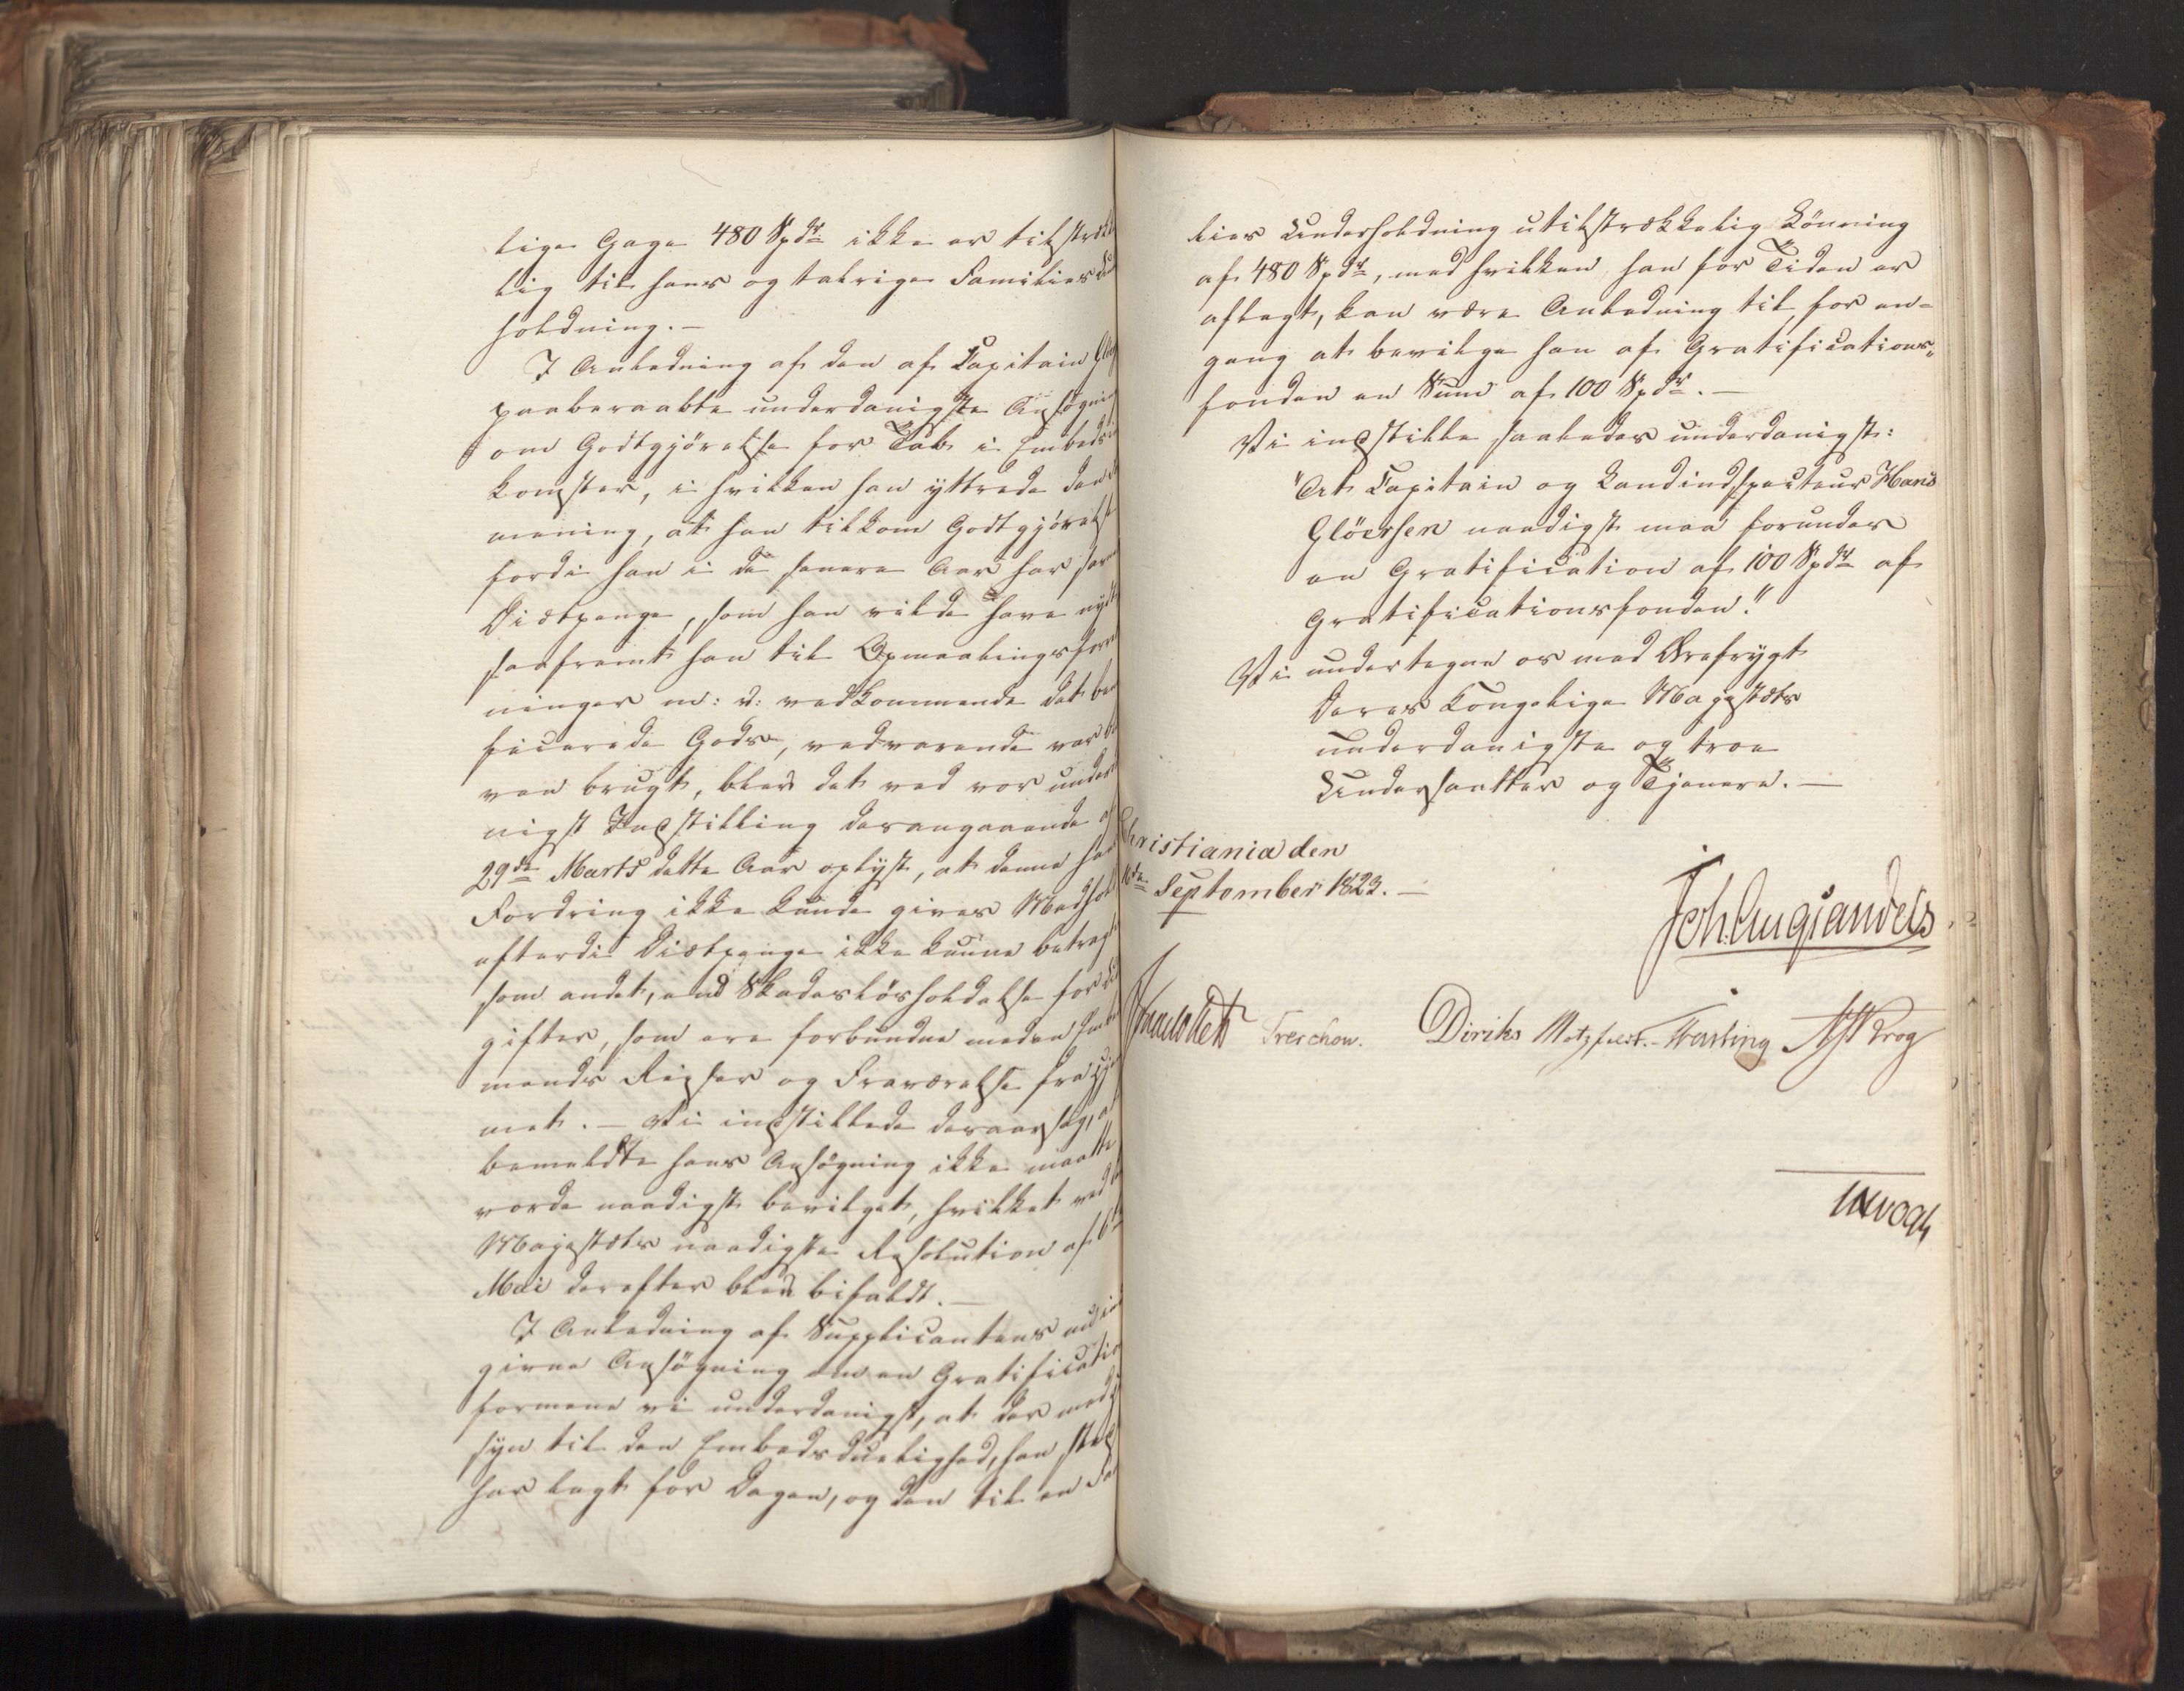 lige Gage 480 Spdr ikke er tilstrække
lig til hans og talrige Families Un
holdning. —
I Anledning af den af Capitain Glø
paaberaabte underdanigste Ansøgning
om Godtgjørelse for Tab i Embeds
komster, i hvilken han yttrede den
mening, at han tilkom Godtgjørelse
fordi han i de senere Aar har
Diætpenge, som han vilde have nydt
saafremt han til Opmaalingsforre
ninger m: v: vedkommende det bene
ficerede Gods, vedvarende var ble
ven brugt, blev det ved vor under
nigst Indstilling derangaaende af
29de Marts dette Aar oplyst, at denne hans
Fordring ikke kunde gives Medhold
efterdi Diætpenge ikke kunne betragt
som andet, end Skadesløsholdelse for Ud
gifter, som ere forbundne med en Embeds
mands Reiser og Fraværelse fra Hjem
met. — Vi indstillede deraarsag, at
bemeldte hans Ansøgning ikke maatte
vorde naadigst bevilget, hvilket ved
Majestæts naadigste Resolution af 6te
Mai derefter blev bifaldt. —
I Anledning af Supplicantens nu ind
givne Ansøgning om en Gratification
formene vi underdanigst, at der med
syn til den Embedsduelighed, han sted
har lagt for Dagen, og den til en Fa
lies Underholdning utilstrækkelig Lønning
af 480 Spdr, med hvilken han for Tiden er
aflagt, kan være Anledning til for en-
gang at bevilge han af Gratifications„
fonden en Sum af 100 Spdr. —
Vi indstille saaledes underdanigst:
"At Capitain og Landindspecteur Hans
Glöersen naadigst maa forundes
en Gratification af 100 Spdr af
Gratificationsfonden."
Vi undertegne os med Ærefrygt
Deres Kongelige Majestæts
underdanigste og troe
Undersaatter og Tjenere. —
Christiania den
16de September 1823. —
Joh. Aug. Sandels
Sommerfeldt Treschow. Diriks Motzfeldt. Fasting A. Krog
LNVogt